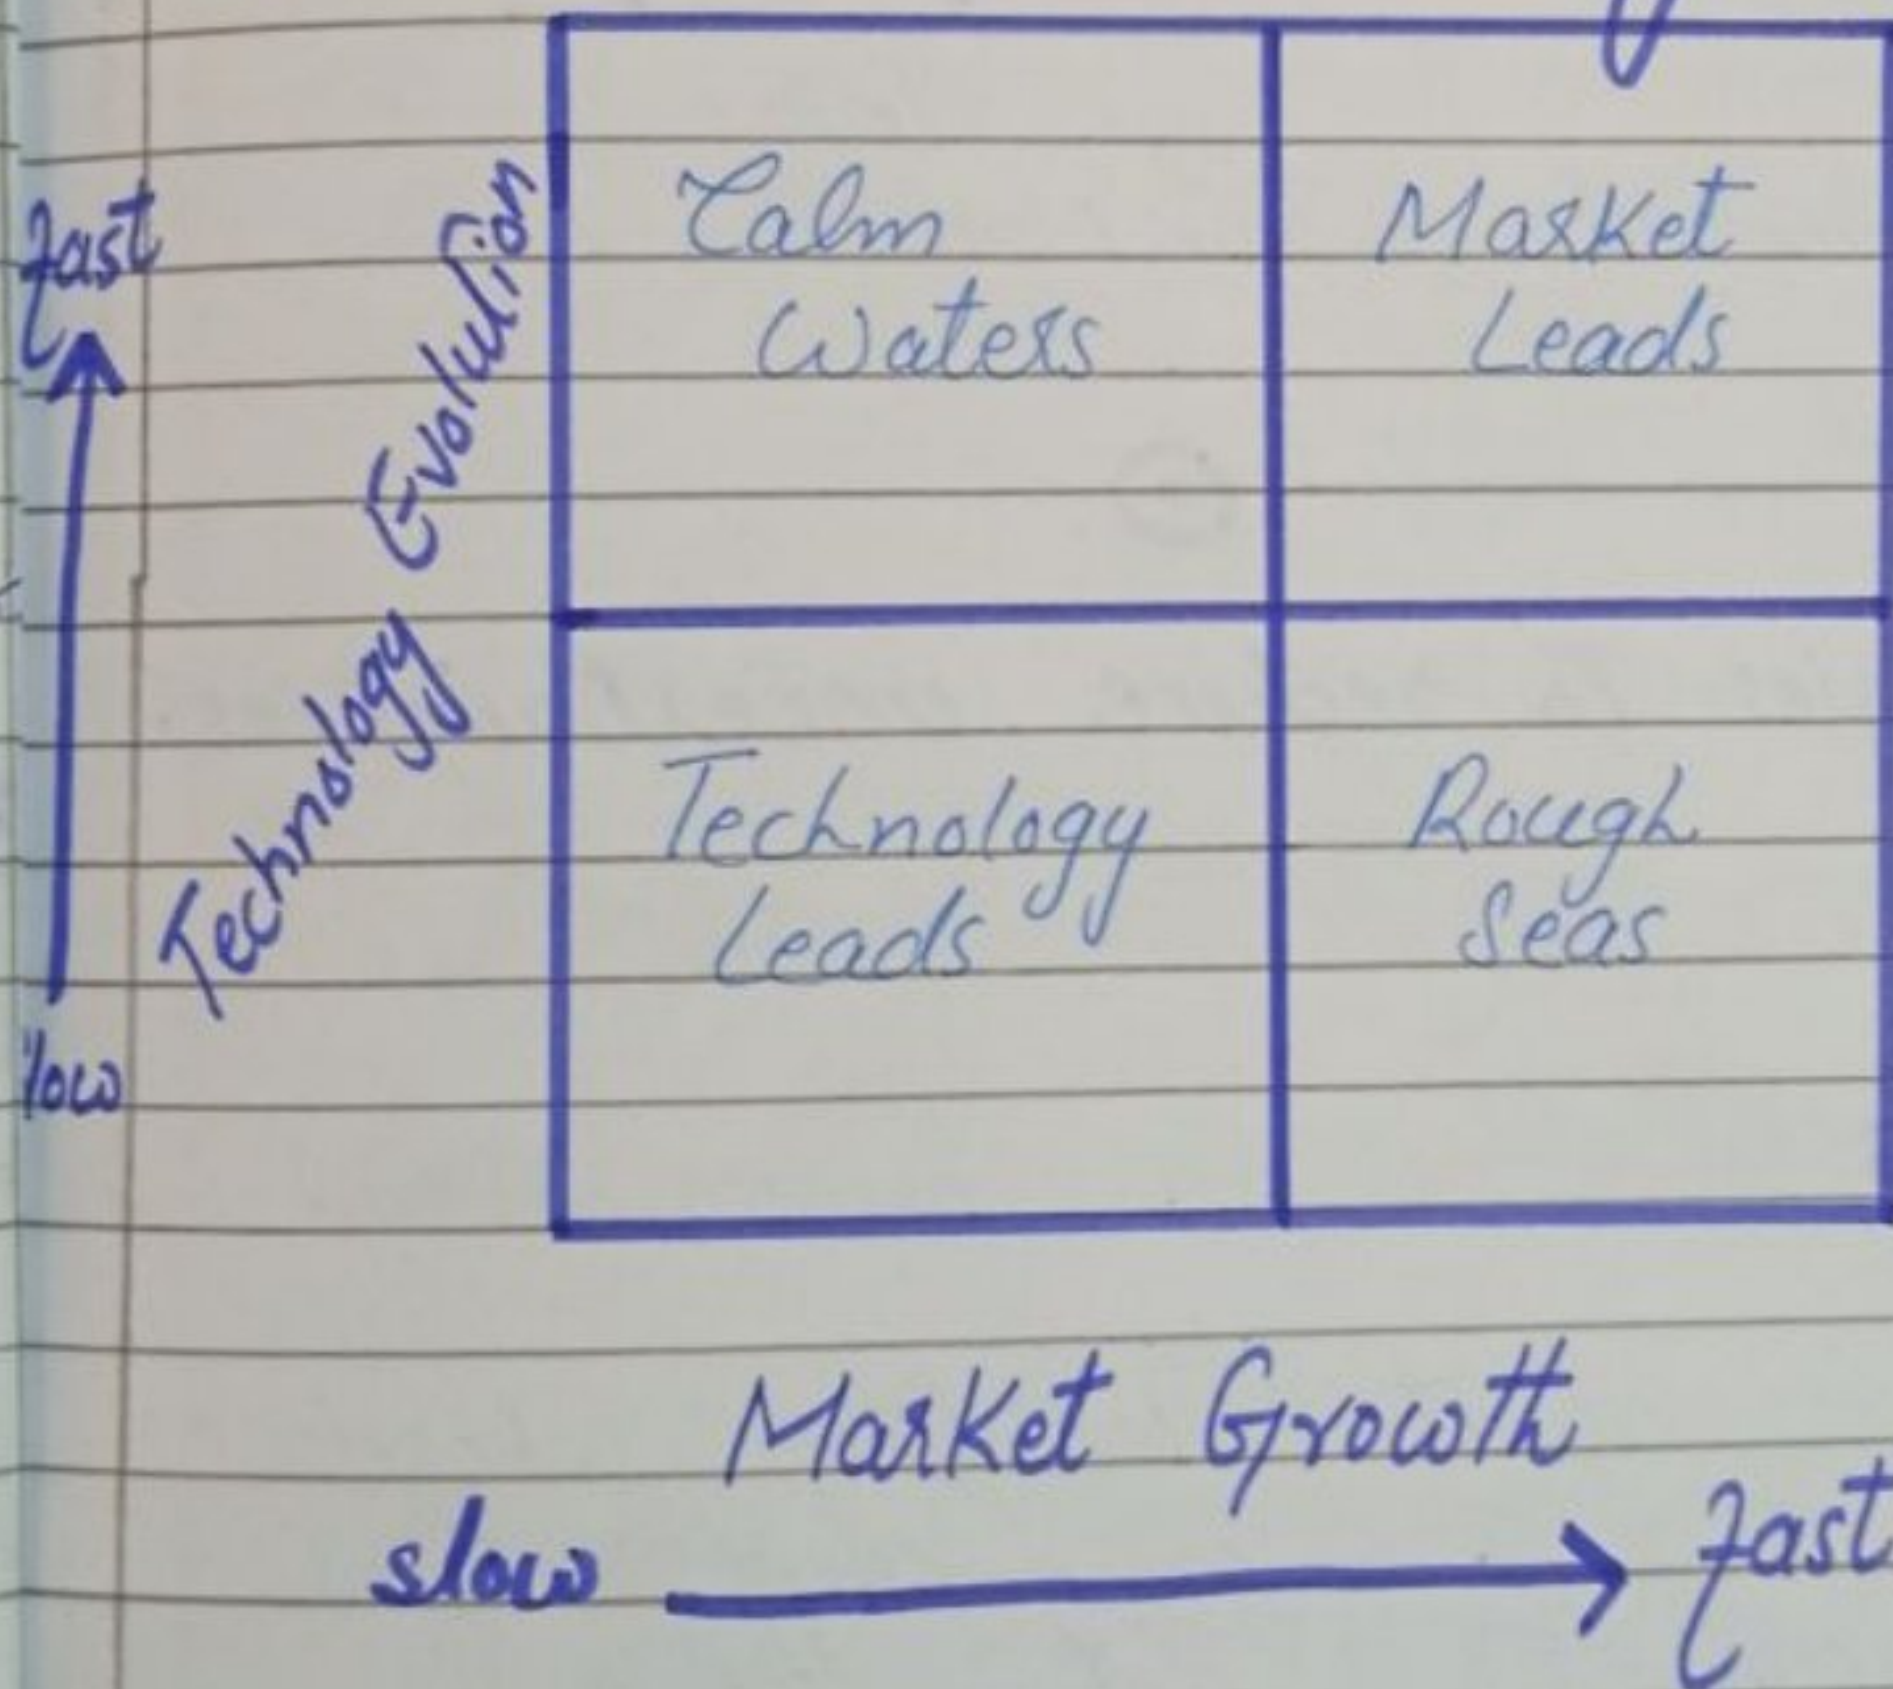 fast
Technology Evolution
low
Calm
Waters
Market
Leads
Technology
Leads
Rough
Seas
Market Growth
slow
fast